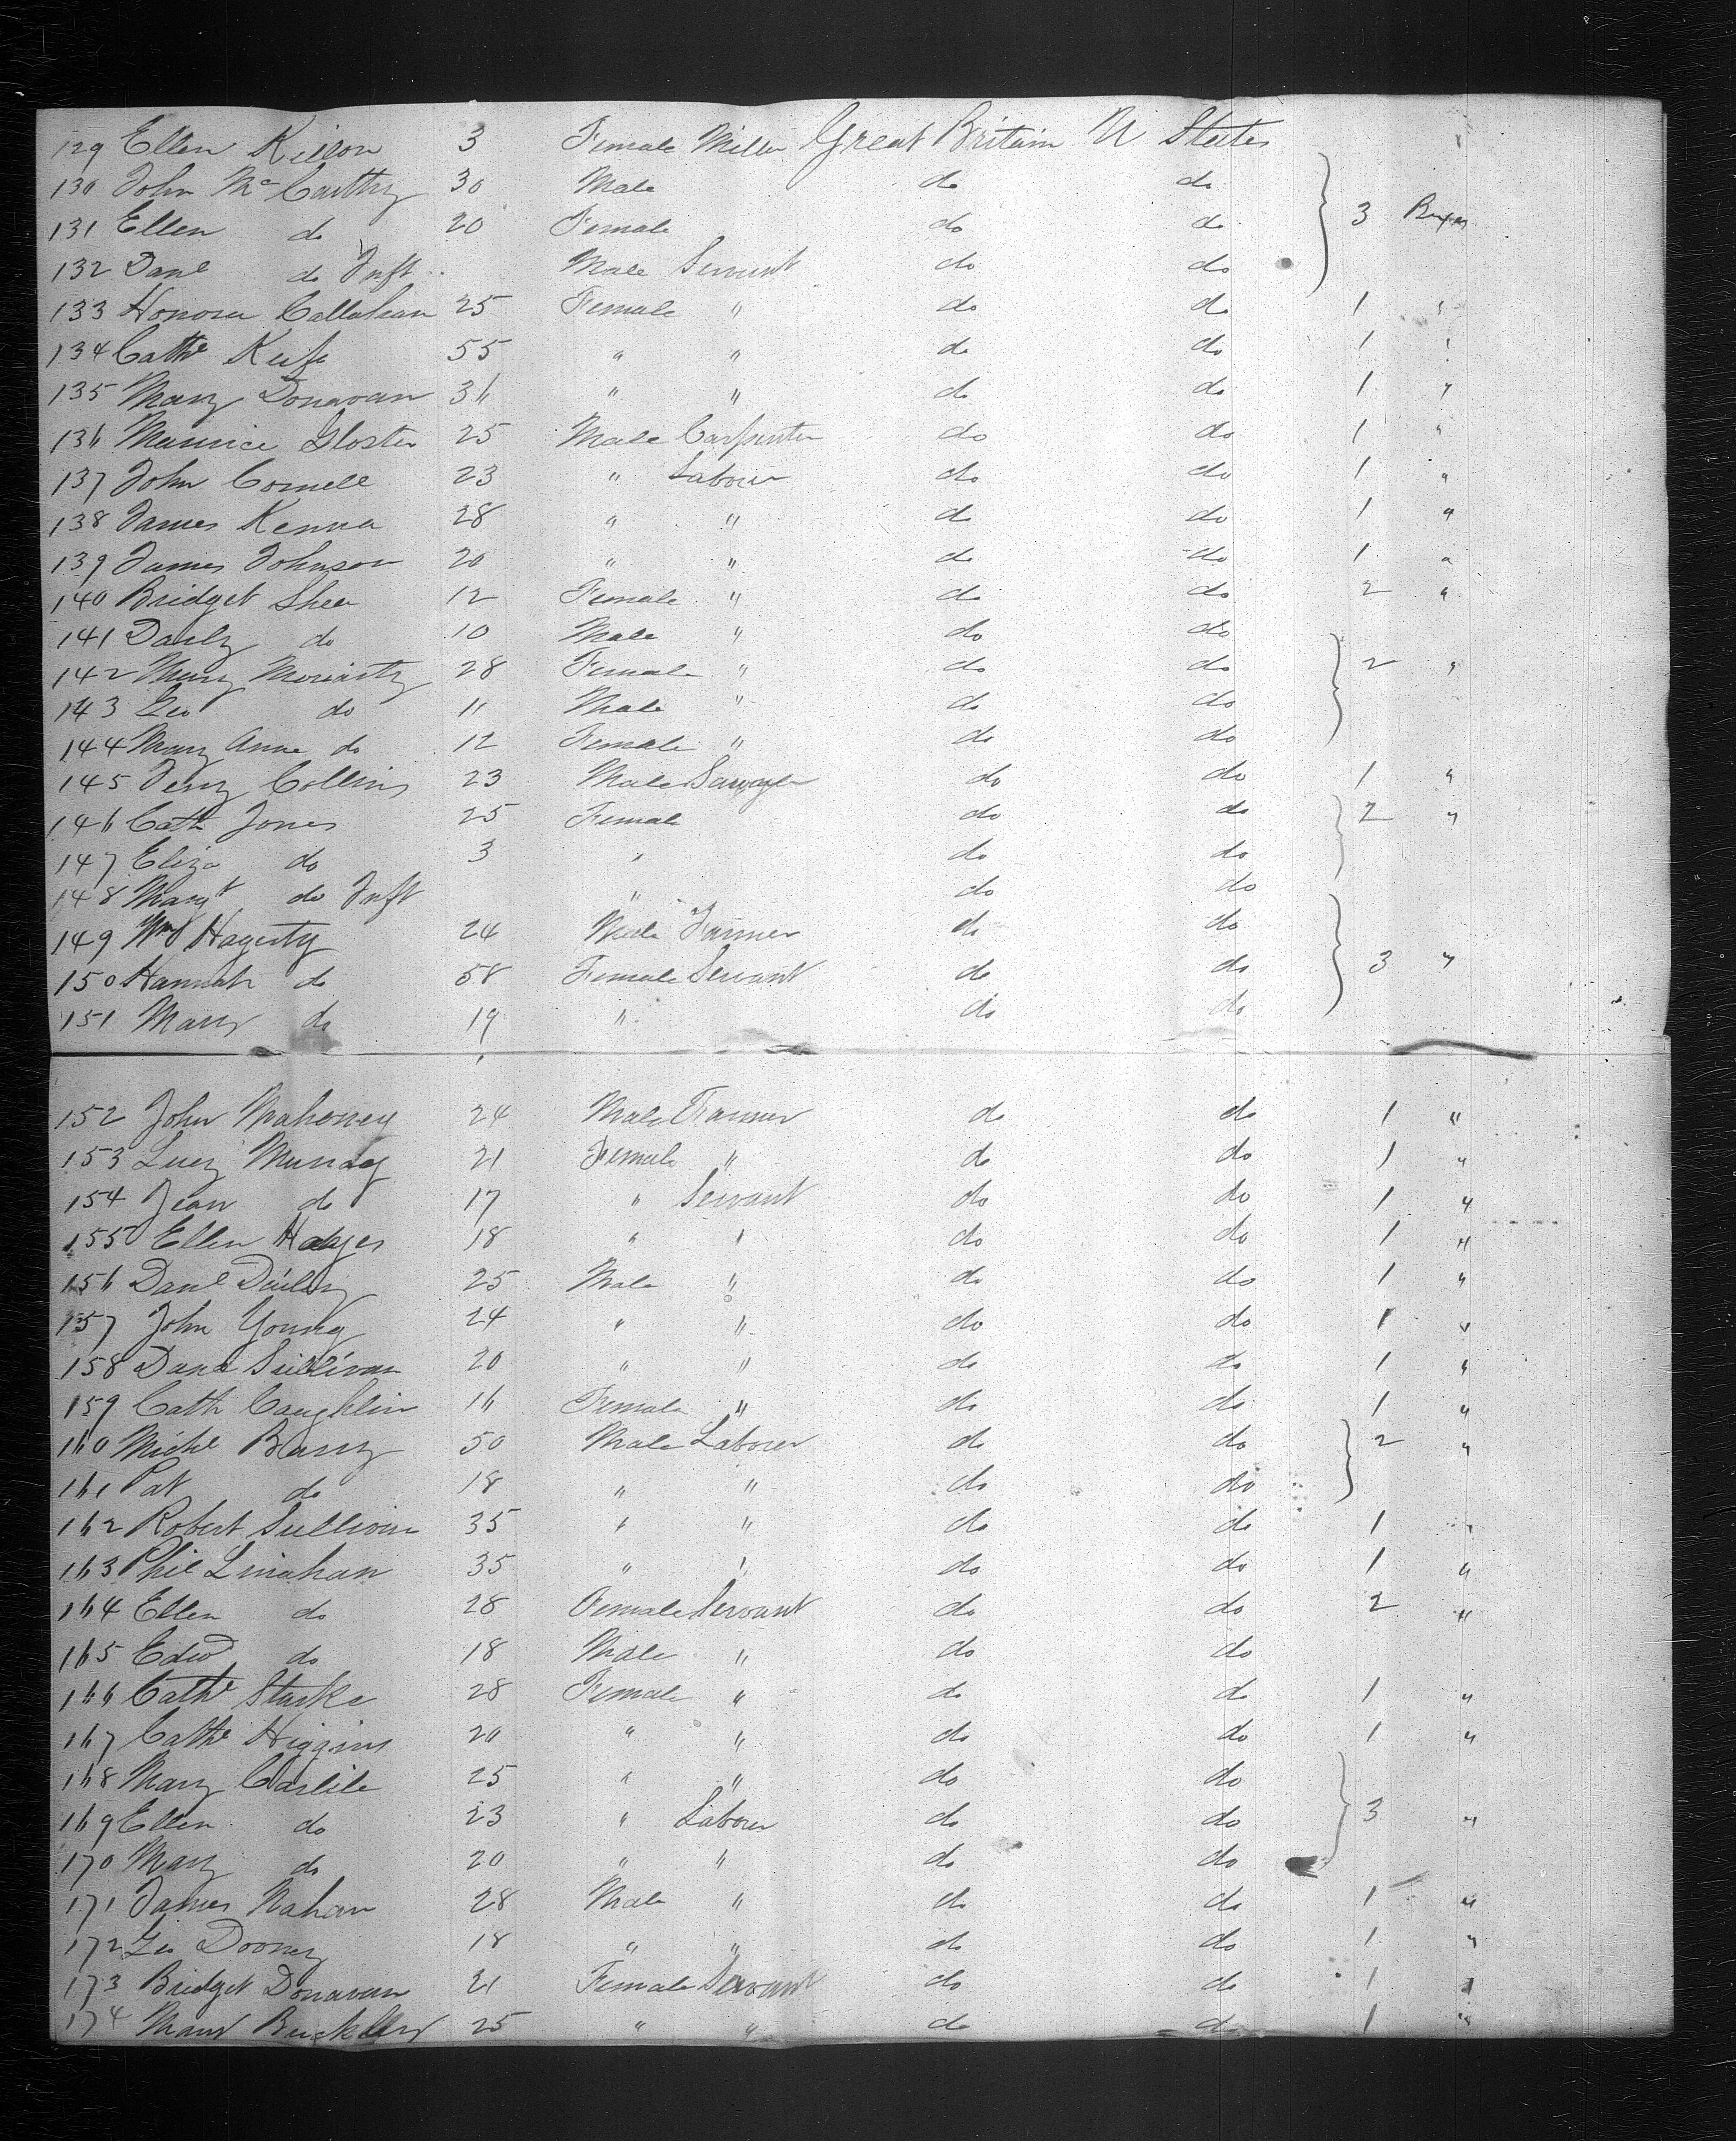 129 Ellen Keilon 3 Female Miller Great Britain U States
130 John McCarthy 30 Male do do
131 Ellen do 20 Female do do 3 Boxes
132 Danl do Inft Male Servant do do
133 Honora Callahan 25 Female " do do 1 "
134 Cathe Keife 55 " " do do 1 "
135 Mary Donavan 36 " " do do 1 "
136 Maurice Gloster 25 Male Carpenter do do 1 "
137 John Cornell 23 " Labourer do do 1 "
138 James Kenna 28 " " do do 1 "
139 James Johnson 20 " " do do 1 "
140 Bridget Shea 12 Female " do do 2 "
141 Darly do 10 Male " do do
142 Mary Moriarty 28 Female " do do 2 "
143 Geo do 11 Male " do do
144 Mary Anne do 12 Female " do do
145 Jerry Collins 23 Male Sawyer do do 1 "
146 Cath Jones 25 Female do do 2 "
147 Eliza do 3 " do do
148 Margt do Inft " do do
149 Wm Hagerty 24 Male Farmer do do
150 Hannah do 58 Female Servant do do 3 "
151 Mary do 19 " do do
152 John Mahoney 24 Male Farmer do do 1 "
153 Lucy Murray 21 Female " do do 1 "
154 Jean do 17 " Servant do do 1 "
155 Ellen Hodges 18 " " do do 1 "
156 Danl Duiley 25 Male " do do 1 "
157 John Young 24 " " do do 1 "
158 Danl Sullivan 20 " " do do 1 "
159 Cath Caughlin 16 Female " do do 1 "
160 Michl Barry 50 Male Labourer do do 2 "
161 Pat do 18 " " do do
162 Robert Sullivan 35 " " do do 1 "
163 Phil Linahan 35 " " do do 1 "
164 Ellen do 28 Female Servant do do 2 "
165 Edwd do 18 Male " do do
166 Cathe Starke 28 Female " do do 1 "
167 Cathe Higgins 20 " " do do 1 "
168 Mary Carlile 25 " " do do
169 Ellen do 23 " Labourer do do 3 "
170 Mary do 20 " " do do
171 James Nahan 28 Male " do do 1 "
172 Geo Dooney 18 " " do do 1 "
173 Bridget Donavan 21 Female Servant do do 1 "
174 Mary Buckley 25 " " do do 1 "